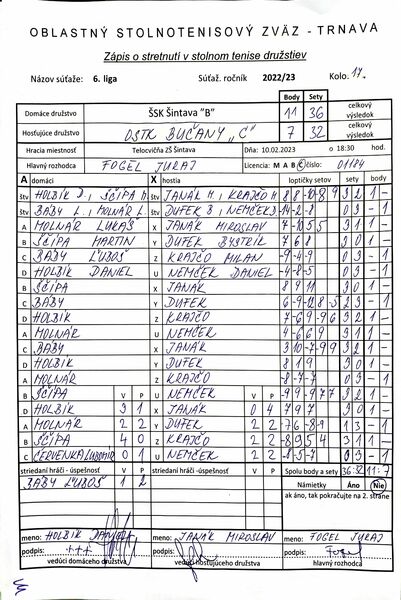 OBLASTNÝ STOLNOTENISOVÝ ZVÄZ - TRNAVA
Zápis o stretnutí v stolnom tenise družstiev
Názov súťaže: 6. liga Súťaž. ročník 2022/23 Kolo. 17.
Body Sety
Domáce družstvo ŠSK Šintava "B" 11 36 celkový výsledok
Hosťujúce družstvo OSTK BUČANY „C" 7 32 celkový výsledok
Hracia miestnosť Telocvičňa ZŠ Šintava Dňa: 10.02.2023 o 18:30 hod.
Hlavný rozhodca FOGEL JURAJ Licencia: M A B C číslo: 01184
A domáci X hostia loptičky setov sety body
štv HOLBÍK D., ŠČÍPA M. štv JANÁK M., KRAJČO M. 8 8 -10 -8 9 3 2 1 -
štv BABY L., MOLNÁR L. štv DUFEK B., NEMČEK D. -14 -2 -8 0 3 - 1
A MOLNÁR LUKÁŠ X JANÁK MIROSLAV
B ŠČÍPA MARTIN Y DUFEK BYSTRÍK 7 6 8 3 0 1 -
C BABY ĽUBOŠ Z KRAJČO MILAN -9 -4 -9 0 3 - 1
D HOLBÍK DANIEL U NEMČEK DANIEL -4 -8 -5 0 3 - 1
B ŠČÍPA X JANÁK 8 9 11 3 0 1 -
C BABY Y DUFEK
D HOLBÍK Z KRAJČO 3 2 1 -
A MOLNÁR U NEMČEK -4 6 6 9 3 1 1 -
C BABY X JANÁK 3 2 1 -
D HOLBÍK Y DUFEK 8 1 9 3 0 1 -
A MOLNÁR Z KRAJČO -8 -7 -7 0 3 - 1
B ŠČÍPA V P U NEMČEK V P 3 2 1 -
D HOLBÍK 3 1 X JANÁK 0 4 7 9 7 3 0 1 -
A MOLNÁR 2 2 Y DUFEK 2 2 -7 6 -8 -9 1 3 - 1
B ŠČÍPA 4 0 Z KRAJČO 2 2 -8 9 5 4 3 1 1 -
C ČERVENKA ĽUBOMÍR 0 1 U NEMČEK 2 2 -8 -5 -7 0 3 - 1
striedaní hráči - úspešnosť V P striedaní hráči - úspešnosť V P Spolu body a sety 36:32 11:7
BABY ĽUBOŠ 1 2 Námietky Áno Nie
ak áno, tak pokračujte na 2. strane
meno: HOLBÍK DANIEL meno: JANÁK MIROSLAV meno: FOGEL JURAJ
podpis: podpis: podpis:
vedúci domáceho družstva vedúci hosťujúceho družstva hlavný rozhodca